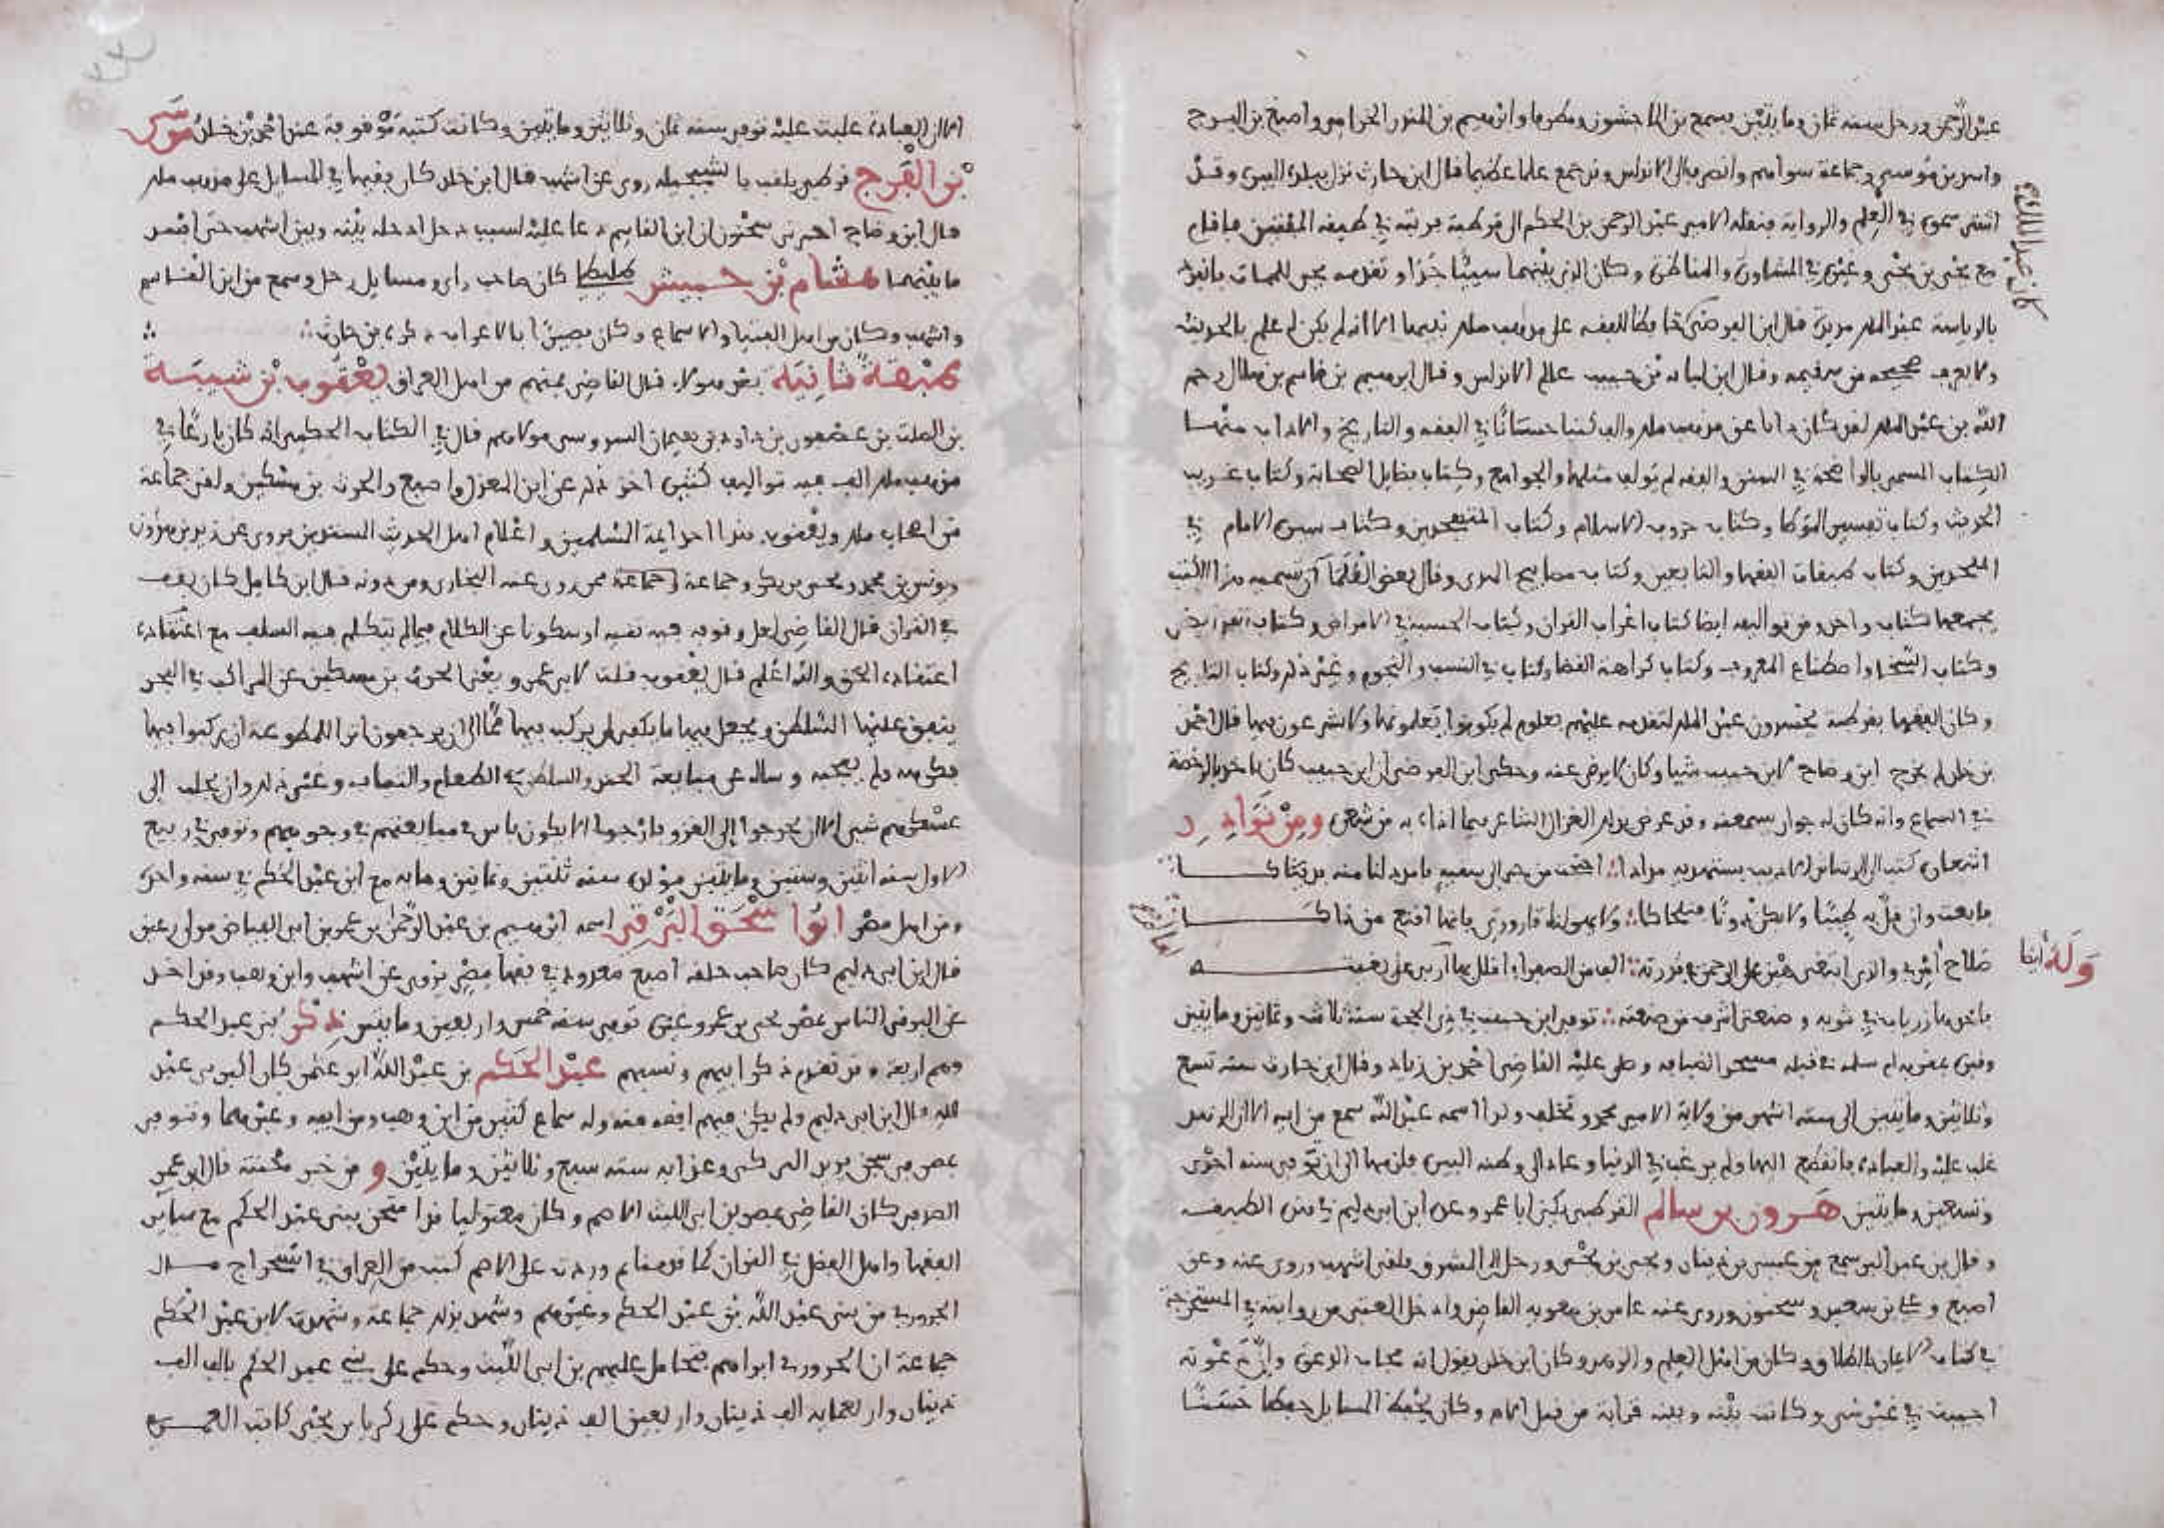 عبد الرحمن ورحل سنة ثمان ومايتين سمع بن الماجشون ومطرفا وابرهيم بن المنذر الحزامي واصبغ بن الفرج
واسد بن موسى وجماعة سواهم وانصرف الى الاندلس وقد جمع علما عظيما قال ابن حارث نزل ببلدة البيرة وقد
انتشر سموه في العلم والرواية فنقله الامير عبد الرحمن بن الحكم الى قرطبة ورتبه في طبقة المفتين فاقام
مع يحيى بن يحيى وغيره في المشاورة والمناظرة وكان الذي بينهما سيئا جدا وتقدمه يحيى للممات فانفرد
بالرياسة عبد الملك مديدة قال ابن الفرضي حافظا للفقه على مذهب ملك نبيها الا انه لم يكن له علم بالحديث
ولا يعرف صحيحه من سقيمه وقال ابن لبابه بن حبيب عالم الاندلس وقال ابرهيم بن قاسم بن هلال رحم
الله بن عبد الملك لقد كان ذابا عن مذهب ملك والف كتبا حسانا في الفقه والتاريخ والاداب منها
الكتاب المسمى بالواضحة في السنن والفقه لم يولف مثلها والجوامع وكتاب فضايل الصحابة وكتاب غريب
الحديث وكتاب تفسير الموطا وكتاب حروب الاسلام وكتاب المسجدين وكتاب سيرة الامام في
الملحدين وكتاب طبقات الفقها والتابعين وكتاب مصابيح الهدى وقال بعض العلما ان تسميه هذا الكتب
يجمعها كتاب واحد ومن تواليفه ايضا كتاب اعراب القران وكتاب الحسبة في الامراض وكتاب الفرايض
وكتاب السخا واصطناع المعروف وكتاب كراهة الغنا وكتاب في النسب والنجوم وغير ذلك وكتاب التاريخ
وكان الفقها بقرطبة يحسدون عبد الملك لتقدمه عليهم بعلوم لم يكونوا يعلمونها ولا يشرعون فيها قال احمد
بن خلد لم يخرج ابن وضاح لابن حبيب شيا وكان لا يرضى عنه وحكى ابن الفرضي ان ابن حبيب كان ياخذ بالرخصة
في السماع وانه كان له جوار يسمعنه وقد عرض بذلك الغزال الشاعر فيما اذاه به من شعره ومن نوادر
وله ايضا
صلاح امري والذي ابتغي هين على الرحمن في قدرته الف من الصفر واقلل بها لعالم اربى على بغيته
ياخذها زرياب في ثوبه وصنعتي اشرف من صنعته توفي ابن حبيب في ذي الحجة سنة ثلاث وثمانين ومايتين
وقبره بمقبرة ام سلمه في قبلة مسجد الضيافة وصلى عليه القاضي احمد بن زياد وقال ابن حارث سنة تسع
وثلاثين ومايتين الى ستة اشهر من ولاية الامير محمد وتخلف ولدا اسمه عبد الله سمع من ابيه الا ان الزهد
غلب عليه والعبادة فانقطع اليها ولم يرغب في الدنيا وعاد الى وطنه البيرة فلزمها الى ان توفي سنة احدى
وتسعين ومايتين هرون بن سالم القرطبي يكنى ابا عمرو عن ابن ابي دليم في هذه الطبقة
وقال بن عبد البر سمع من عيسى بن دينار ويحيى بن يحيى ورحل الى المشرق فلقي اشهب وروى عنه وعن
اصبغ وعلي بن معبد وسحنون وروى عنه عامر بن معوية القاضي وادخل العتبي من روايته في المستخرجة
في كتاب الايمان بالطلاق وكان من اهل العلم والزهد وكان ابن خلد يقول انه مجاب الدعوة وان دعوته
اجيبت في غير شي وكانت بينه وبينه قرابة من قبل امام وكان يحفظ المسايل حفظا حسنا
الا ان العبادة غلبت عليه توفي سنة ثمان وثلاثين ومايتين وكانت كتبه موقوفة عند احمد بن خلد موسى
بن الفرج قرطبي يلقب روى عن اشهب قال ابن خلد كان فقيها في المسايل على مذهب ملك
قال ابن وضاح اخبرني سحنون ان ابن القاسم دعا عليه لسبب دخل ادخله بينه وبين اشهب حتى افسد
ما بينهما هشام بن حبيش طليطلي كان صاحب راى ومسايل رحل وسمع من ابن القاسم
واشهب وكان من اهل الفتيا والاسماع وكان بصيرا بالاعراب ذكره بن حارث
طبقة ثانية بعد هولاء قال القاضي فمنهم من اهل العراق يعقوب بن شيبة
بن الصلت بن عصفور بن مولاهم قال في الكتاب الخطيب انه كان بارعا في
مذهب ملك الف فيه تواليف كثيرة اخذ ذلك عن ابن المعذل واصبغ والحرث بن مسكين ولقي جماعة
من اصحاب ملك ويعقوب هذا احد ايمة المسلمين واعلام اهل الحديث المسندين يروي عن يزيد بن هرون
ويونس بن محمد ويحيى بن بكير وجماعة روى عنه البخاري ومن دونه قال ابن كامل كان يقف
في القران قال القاضي لعل وقوفه فيه تقية او سكوتا عن الكلام فيما لم يتكلم فيه السلف مع اعتقاده
اعتقاده الحق والله اعلم قال يعقوب قلت لابي عمرو يعني الحرث بن مسكين عن المراكب في البحر
ينفق عليها السلطن ويجعل فيها ما يكفي لمن يركب فيها ممن الى ان يرجعون اترا للمطوعة ان يركبوا فيها
فكرهه ولم يعجبه وساله عن مبايعة الجند والسلطن في الطعام والثياب وغير ذلك وان يجلب الى
عسكرهم شي الا ان يخرجوا الى الغزو فارجوا الا يكون باس في مبايعتهم في وجوههم وتوفي في ربيع
الاول سنة اثنين وستين ومايتين مولده سنة ثنتين وثمانين ومايه مع ابن عبد الحكم في سنه واحدة
ومن اهل مصر ابو اسحق البرقي اسمه ابرهيم بن عبد الرحمن بن عمرو بن ابي الفياض مولى رعين
قال ابن ابي دليم كان صاحب حلقة اصبغ معدود في فقها مصر يروي عن اشهب وابن وهب وقد اخذ
عن البرقي الناس بمصر يحيى بن عمرو وغيره توفي سنة خمس واربعين ومايتين ذكر بني عبد الحكم
وهم اربعة وقد تقدم ذكر ابيهم ونسبهم عبد الحكم بن عبد الله ابو عثمن كان اكبر بني عبد
الله قال ابن ابي دليم ولم يكن فيهم افقه منه وله سماع كثير من ابن وهب ومن ابيه وغيرهما وتوفي
بمصر في سجن يزيد التركي وعذابه سنة سبع وثلاثين ومايتين ومن خبر محنته قال ابو عمر
الصدفي كان القاضي بمصر بن ابي الليث الاصم وكان معتزليا قد امتحن بني عبد الحكم مع ساير
الفقها واهل الفضل في القران كما قدمنا ثم وردت على الاصم كتب من العراق في استخراج مال
الجروي من بني عبد الله بن عبد الحكم وغيرهم وشهد بذلك جماعة وشهدت لابن عبد الحكم
جماعة ان الجروي ابراهم فتحامل عليهم بن ابي الليث وحكم على بني عبد الحكم بالف الف
دينار واربعمايه الف دينار واربعين الف دينار وحكم على زكريا بن يحيى كاتب العمري